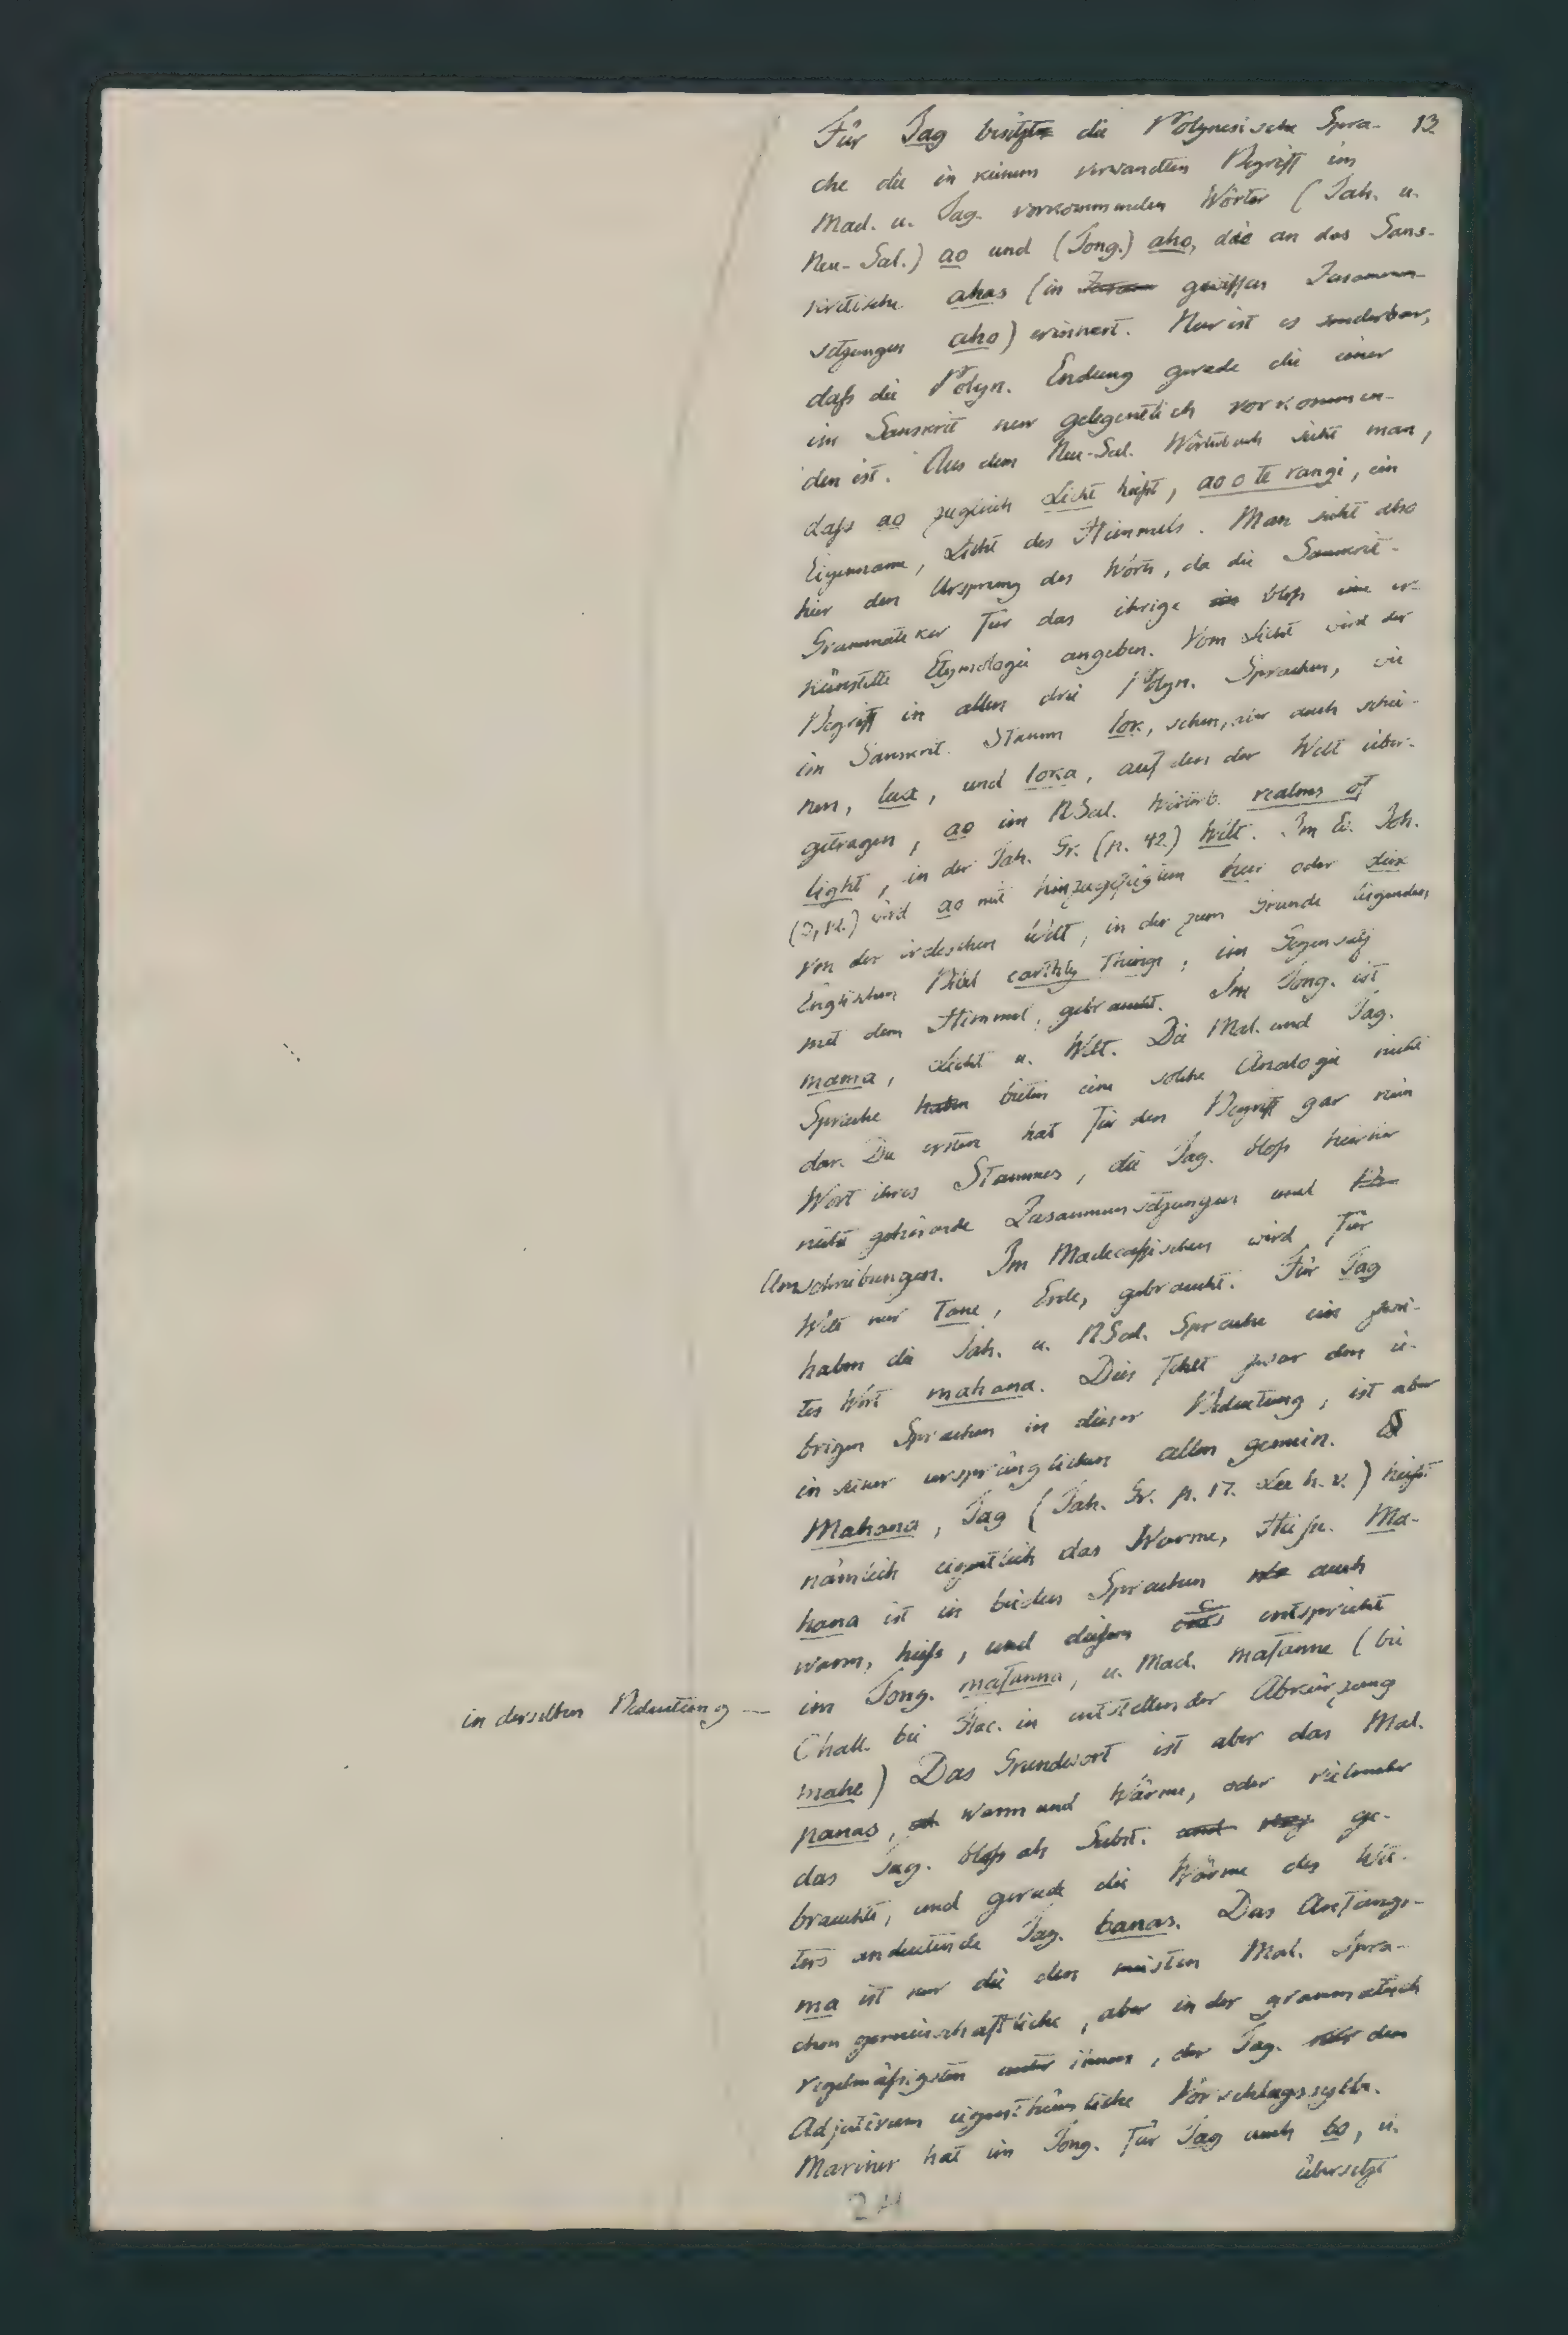 Für Tag besitzt die Polynesische Spra- 13
che die in keinem verwandten Begriff im
Mad. u. Tag. vorkommenden Wörter (Tah. u.
Neu-Sal.) ao und (Tong.) aho, das an das Sans-
kritische ahas (in gewissen Zusammen-
setzungen aho) erinnert. Nur ist es sonderbar,
daß die Polyn. Endung gerade die einer
im Sanskrit nur gelegentlich vorkommen-
den ist. Aus dem Neu-Sal. Wörterbuch sieht man,
daß ao zugleich Licht heißt, ao o te rangi, ein
Eigenname, Licht des Himmels. Man sieht also
hier den Ursprung des Worts, da die Sanskrit-
Grammatiker für das ihrige bloß eine er-
künstelte Etymologie angeben. Vom Licht wird der
Begriff in allen drei Polyn. Sprachen, wie
im Sanskrit Stamm lok, sehen, aber auch schei-
nen, lux, und loka, auf den der Welt über-
getragen, ao im NSal. Wörterb. realms of
light, in der Tah. Gr. (p. 42.) Welt. Im Ev. Joh.
(3,12.) wird ao mit hinzugefügtem
von der irdischen Welt, in der zum Grunde liegenden,
Englischen Bibel earthly things, im Gegensatz
mit dem Himmel, gebraucht. Im Tong. ist
mama, Licht u. Welt. Die Mal. und Tag.
Sprache haben bieten eine solche Analogie nicht
dar. Die erstere hat für den Begriff gar kein
Wort ihres Stammes, die Tag. bloß hierher
nicht gehörende Zusammensetzungen und
Umschreibungen. Im Madecassischen wird für
Welt nur Tane, Erde, gebraucht. Für Tag
haben die Tah. u. NSal. Sprache ein zwei-
tes Wort mahana. Dies fehlt zwar den ü-
brigen Sprachen in dieser Bedeutung, ist aber
in seiner ursprünglichen allen gemein.
Mahana, Tag (Tah. Gr. p. 17. Lee h. v.) heißt
nämlich eigentlich das Warme, Heiße. Ma-
hana ist in beiden Sprachen auch
warm, heiß, und diesem entspricht
in derselben Bedeutung — im Tong. mafanna, u. Mad. mafanne (bei
Chall. bei Flac. in entstellender Abkürzung
mahe) Das Grundwort ist aber das Mal.
panas, warm und Wärme, oder vielmehr
das Tag. bloß als Subst. und ge-
brauchte, und gerade die Wärme des Wet-
ters andeutende Tag. banas. Das Anfangs-
ma ist nur die den meisten Mal. Spra-
chen gemeinschaftliche, aber in der grammatisch
regelmäßigsten unter ihnen, der Tag. dem
Adjectivum eigenthümliche Vorschlagssylbe.
Mariner hat im Tong. für Tag auch bo, u.
übersetzt
24